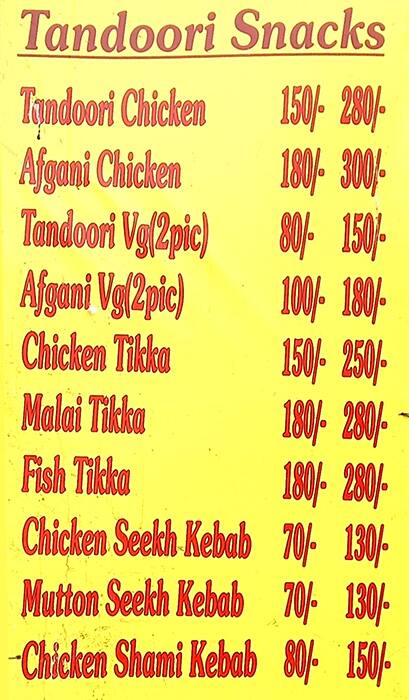 Tandoori Snacks
Tandoori Chicken 150/- 280/-
Afgani Chicken 180/- 300/-
Tandoori Vg(2pic) 80/- 150/-
Afgani Vg(2pic) 100/- 180/-
Chicken Tikka 150/- 250/-
Malai Tikka 180/- 280/-
Fish Tikka 180/- 280/-
Chicken Seekh Kebab 70/- 130/-
Mutton Seekh Kebab 70/- 130/-
Chicken Shami Kebab 80/- 150/-